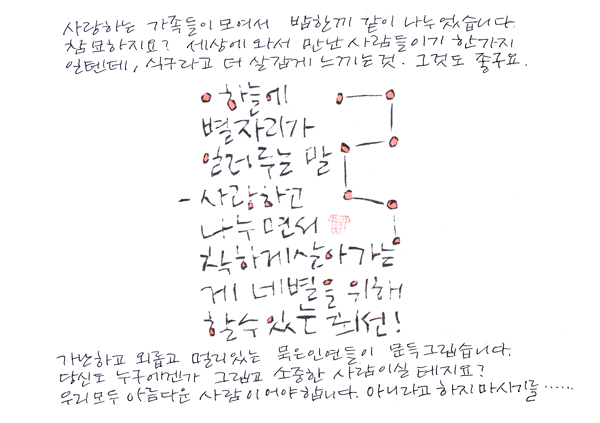 사랑하는 가족들이 모여서 밥한끼 같이 나누었습니다.
참 묘하지요? 세상에 와서 만난 사람들이기 한가지
일텐데, 식구라고 더 살갑게 느끼는 것. 그것도 좋구요.
하늘에
별자리가
일러주는 말
- 사랑하고
나누면서
착하게 살아가는
게 네 별을 위해
할 수 있는 최선!
가난하고 외롭고 멀리있는 묵은인연들이 문득 그립습니다.
당신도 누구에겐가 그립고 소중한 사람이실 테지요?
우리모두 아름다운 사람이어야합니다. 아니라고 하지마시기를……